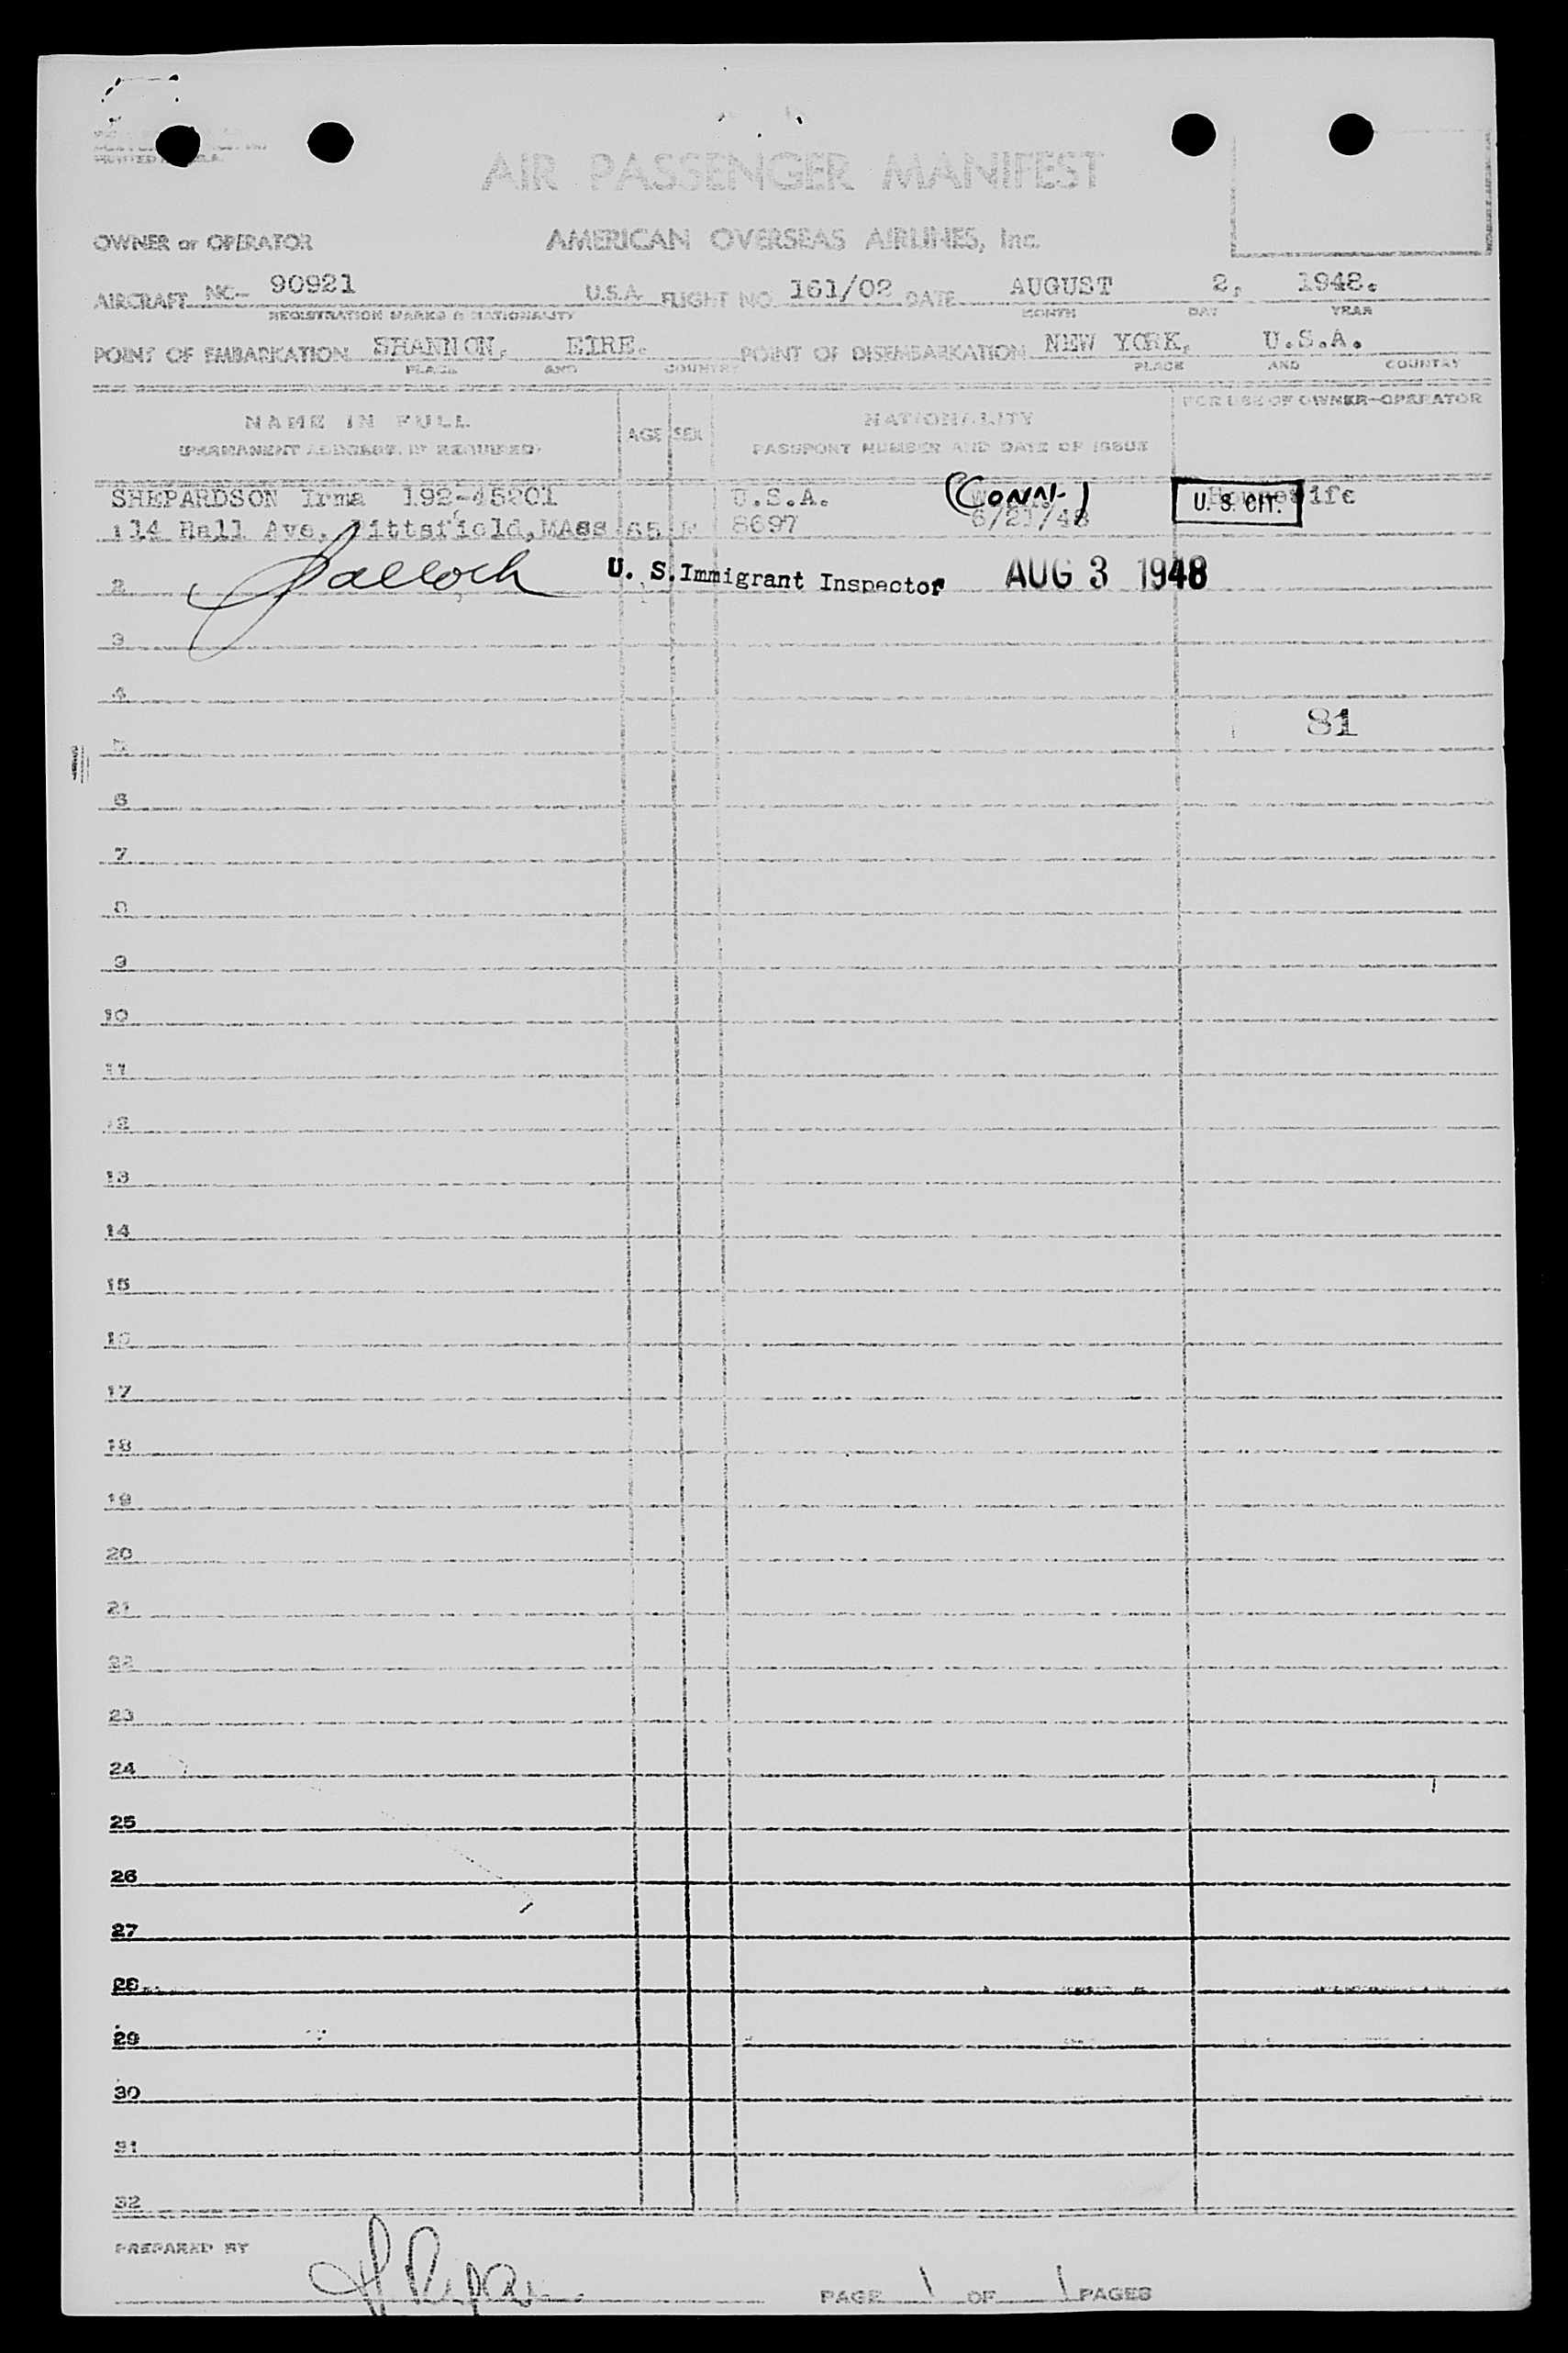 PRINTED U.S.A.
AIR PASSENGER MANIFEST
OWNER or OPERATOR AMERICAN OVERSEAS AIRLINES, Inc.
AIRCRAFT NC- 90921 U.S.A. FLIGHT NO. 161/02 DATE AUGUST 2, 1948.
REGISTRATION MARKS & NATIONALITY MONTH DAY YEAR
POINT OF EMBARKATION SHANNON, EIRE. POINT OF DISEMBARKATION NEW YORK, U.S.A.
PLACE AND COUNTRY PLACE AND COUNTRY
NAME IN FULL AGE SEX NATIONALITY FOR USE OF OWNER-OPERATOR
(PERMANENT ADDRESS, IF REQUIRED) PASSPORT NUMBER AND DATE OF ISSUE
SHEPARDSON Irma 192-45201 U.S.A. (CONN.) U. S. CIT. Housewife
114 Hall Ave, Pittsfield, MAss 65 8697 6/21/48
2 U. S. Immigrant Inspector AUG 3 1948
3
4
81
5
6
7
8
9
10
11
12
13
14
15
16
17
18
19
20
21
22
23
24
25
26
27
28
29
30
31
32
PREPARED BY
PAGE 1 OF 1 PAGES